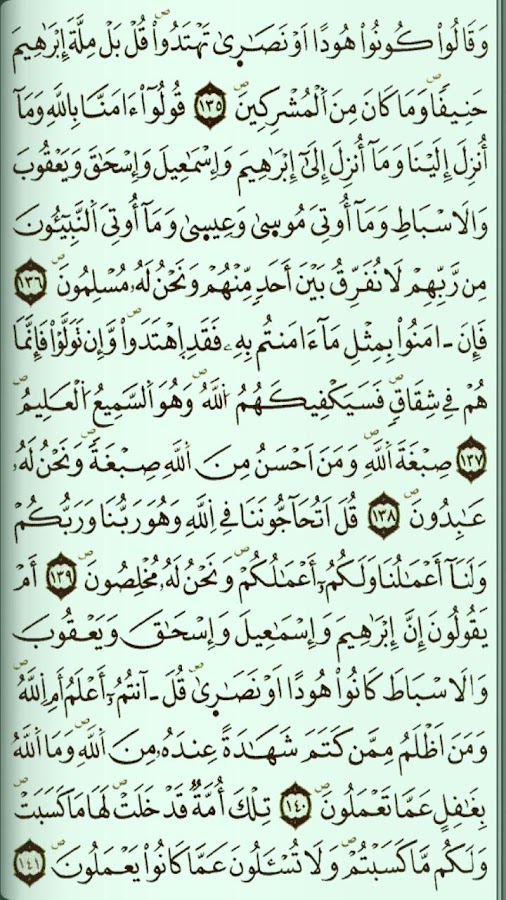 وَقَالُواْ كُونُواْ هُودًا اَوْ نَصَٰرۭيٰ تَهْتَدُواْۖ قُلْ بَلْ مِلَّةَ إِبْرَٰهِيمَ
حَنِيفٗاۖ وَمَا كَانَ مِنَ اَ۬لْمُشْرِكِينَۖ ١٣٥ قُولُوٓاْ ءَامَنَّا بِاللَّهِ وَمَآ
أُنزِلَ إِلَيْنَا وَمَآ أُنزِلَ إِلَىٰٓ إِبْرَٰهِيمَ وَإِسْمَٰعِيلَ وَإِسْحَٰقَ وَيَعْقُوبَ
وَالَاسْبَاطِ وَمَآ أُوتِيَ مُوسۭيٰ وَعِيسۭيٰ وَمَآ أُوتِيَ اَ۬لنَّبِيٓـُٔونَ
مِن رَّبِّهِمْ لَا نُفَرِّقُ بَيْنَ أَحَدٖ مِّنْهُمْ وَنَحْنُ لَهُۥ مُسْلِمُونَۖ ١٣٦
فَإِنَ ـ امَنُواْ بِمِثْلِ مَآ ءَامَنتُم بِهِۦ فَقَدِ اِ۪هْتَدَواْۖ وَّإِن تَوَلَّوْاْ فَإِنَّمَا
هُمْ فِي شِقَاقٖۖ فَسَيَكْفِيكَهُمُ اُ۬للَّهُۖ وَهُوَ اَ۬لسَّمِيعُ اُ۬لْعَلِيمُۖ
١٣٧ صِبْغَةَ اَ۬للَّهِۖ وَمَنَ اَحْسَنُ مِنَ اَ۬للَّهِ صِبْغَةٗۖ وَنَحْنُ لَهُۥ
عَٰبِدُونَۖ ١٣٨ قُلَ اَتُحَآجُّونَنَا فِي اِ۬للَّهِ وَهُوَ رَبُّنَا وَرَبُّكُمْ
وَلَنَآ أَعْمَٰلُنَا وَلَكُمُۥٓ أَعْمَٰلُكُمْۖ وَنَحْنُ لَهُۥ مُخْلِصُونَۖ ١٣٩ أَمْ
يَقُولُونَ إِنَّ إِبْرَٰهِيمَ وَإِسْمَٰعِيلَ وَإِسْحَٰقَ وَيَعْقُوبَ
وَالَاسْبَاطَ كَانُواْ هُودًا اَوْ نَصَٰرۭيٰۖ قُلَ ـ آنتُمُۥٓ أَعْلَمُ أَمِ اِ۬للَّهُۖ
وَمَنَ اَظْلَمُ مِمَّن كَتَمَ شَهَٰدَةً عِندَهُۥ مِنَ اَ۬للَّهِۖ وَمَا اَ۬للَّهُ
بِغَٰفِلٍ عَمَّا تَعْمَلُونَۖ ١٤٠ تِلْكَ أُمَّةٞ قَدْ خَلَتْۖ لَهَا مَا كَسَبَتْ
وَلَكُم مَّا كَسَبْتُمْۖ وَلَا تُسْـَٔلُونَ عَمَّا كَانُواْ يَعْمَلُونَۖ ١٤١